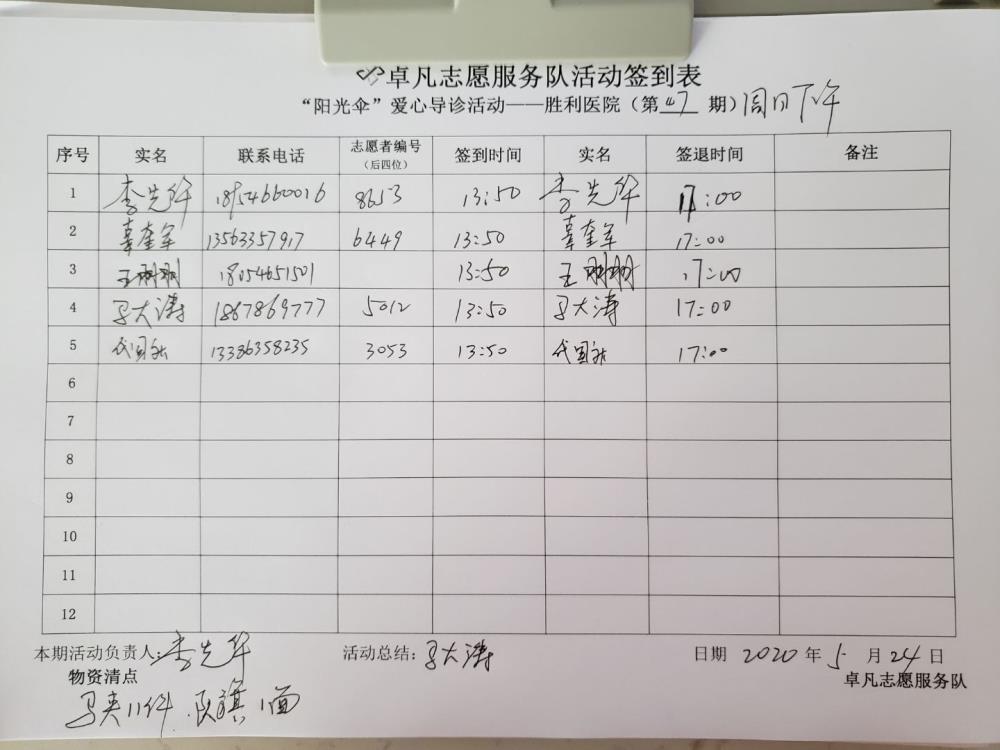 卓凡志愿服务队活动签到表
“阳光伞”爱心导诊活动——胜利医院（第47期）周日下午
序号 实名 联系电话 志愿者编号（后四位） 签到时间 实名 签退时间 备注
1 李先华 18954660016 8653 13:50 李先华 17:00
2 辜奎军 13563357917 6449 13:50 辜奎军 17:00
3 王刚刚 18054651501 13:50 王刚刚 17:00
4 马大涛 1867869777 5012 13:50 马大涛 17:00
5 代国社 13386358235 3053 13:50 代国社 17:00
6
7
8
9
10
11
12
本期活动负责人：李先华 活动总结：马大涛 日期 2020 年 5 月 24 日
物资清点 卓凡志愿服务队
马夹11件.队旗1面